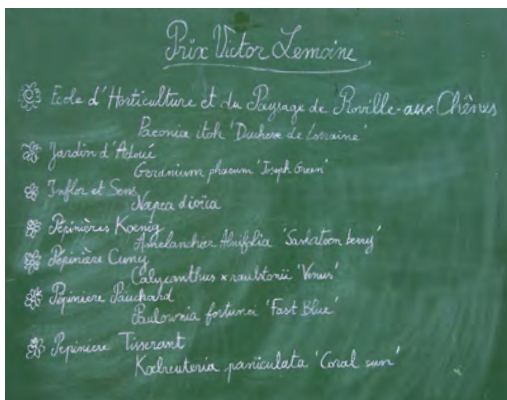 Prix Victor Lemoine
Ecole d'Horticulture et du Paysage de Roville-aux-Chênes
Paeonia itoh 'Duchesse de Lorraine'
Jardin d'Adoué
Geranium phaeum 'Joseph Green'
Inflor et Sens
Napea dioïca
Pépinières Koenig
Amelanchier Alnifolia 'Saskatoon berry'
Pépinière Cuny
Calycanthus x raulstonii 'Venus'
Pépinière Pauchard
Paulownia fortunei 'Fast Blue'
Pepiniere Tisserant
Koelreuteria paniculata 'Coral sun'